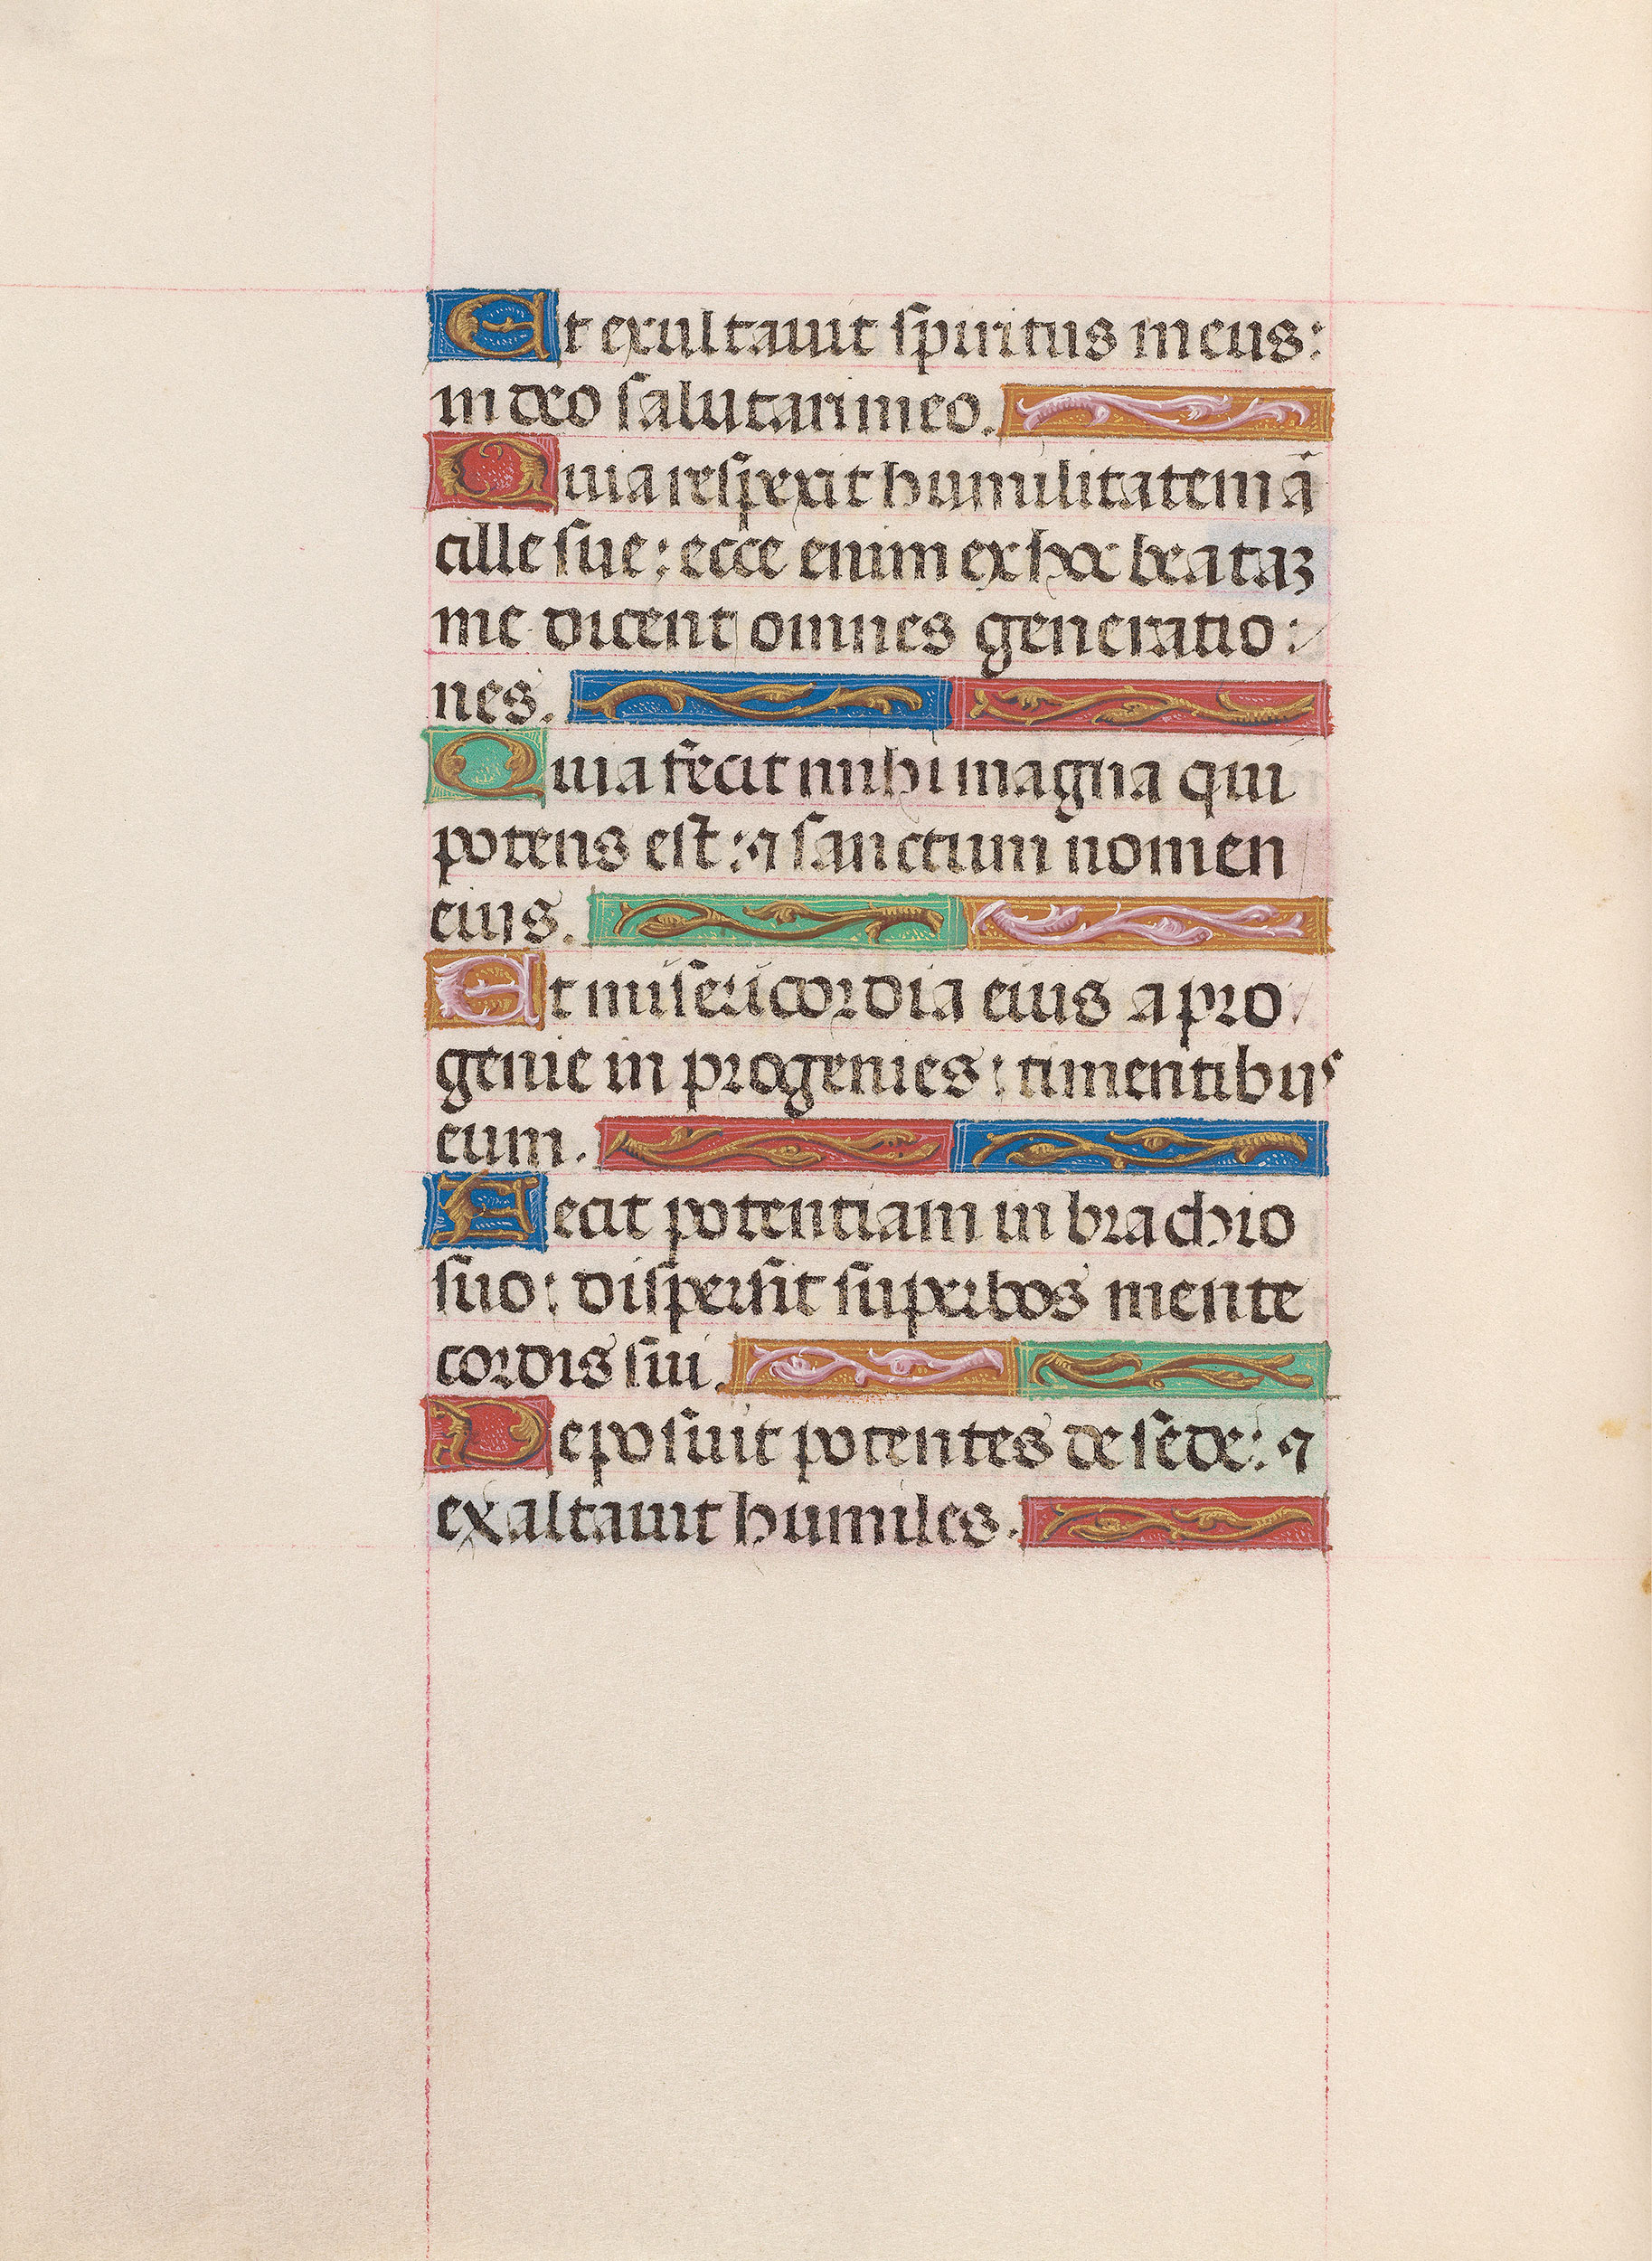 Et exultauit spiritus meus:
in deo salutari meo.
Quia respexit humilitatem ā
cille sue: ecce enim ex hoc beataʒ
me dicent omnes generatio:
nes.
Quia fecit mihi magna qui
potens est: ⁊ sanctum nomen
eius.
Et misericordia eius a pro
genie in progenies: timentibus
eum.
Fecit potentiam in brachio
suo: dispersit superbos mente
cordis sui.
Deposuit potentes de sede: ⁊
exaltauit humiles.